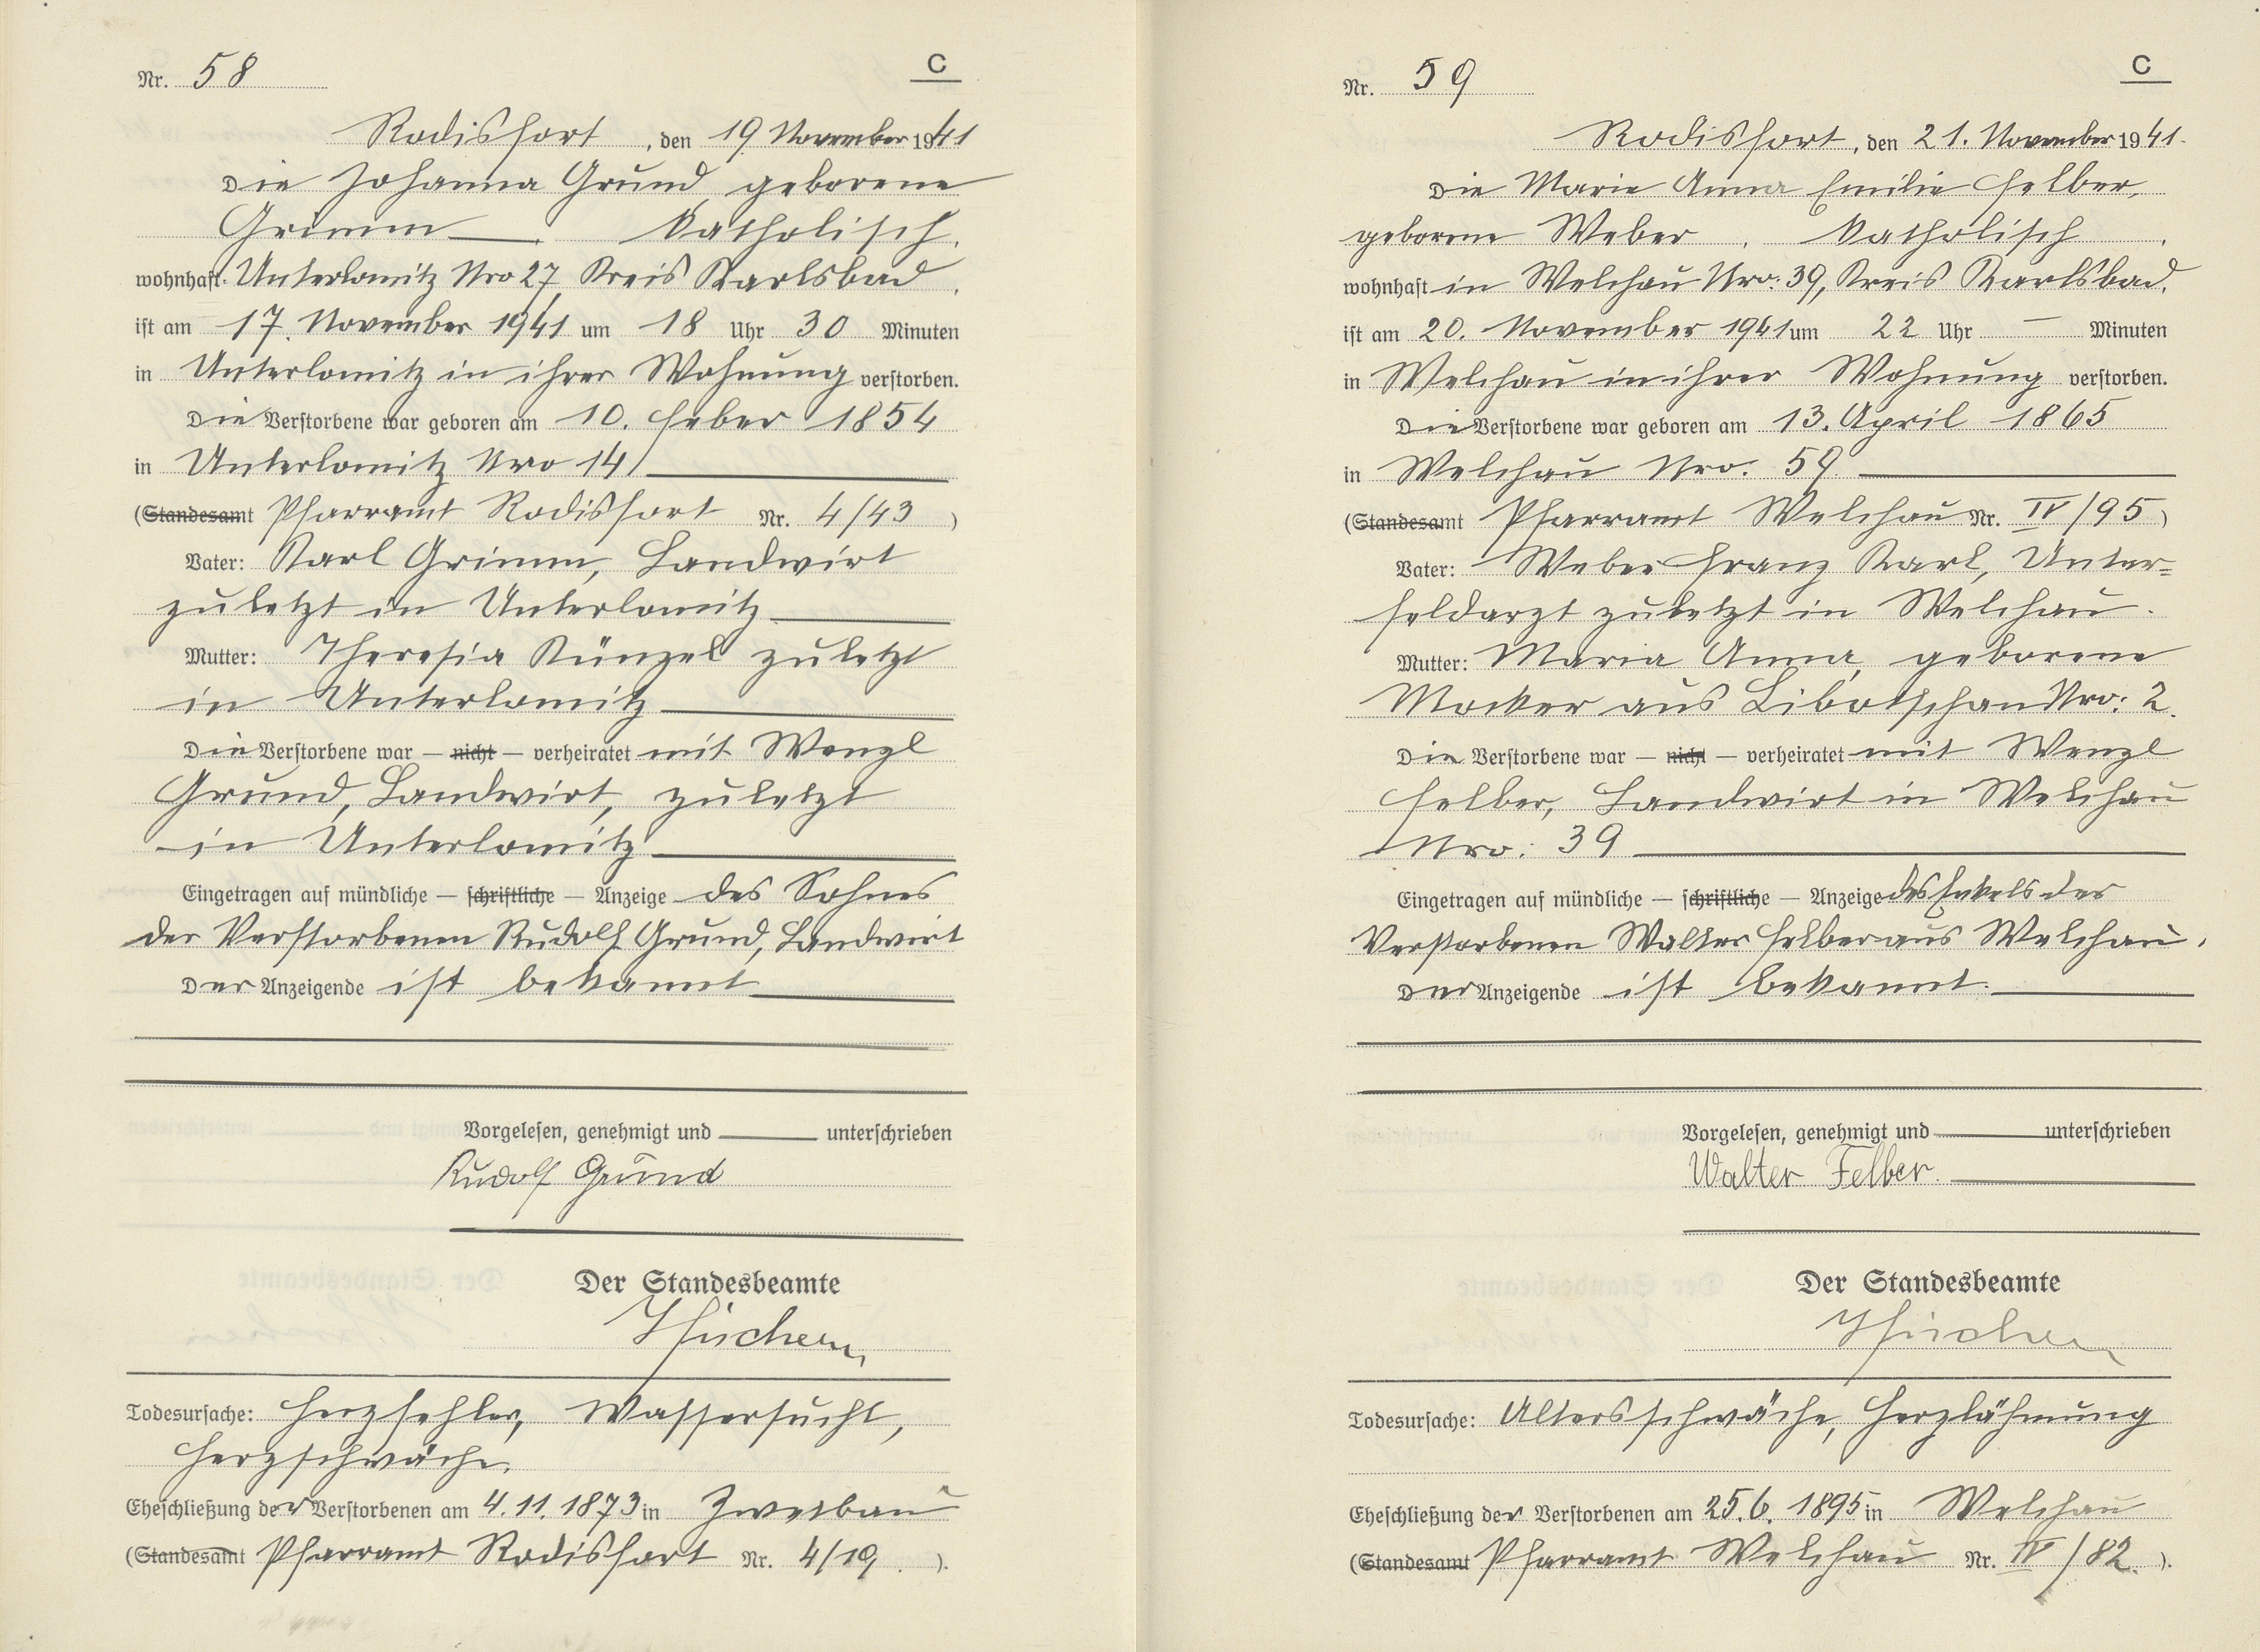 Nr. 58
C
Rodisfort, den 19. November 1941
Die Johanna Grund geborene
Grimm katholisch,
wohnhaft Unterlomitz Nro 27, Kreis Karlsbad,
ist am 17. November 1941 um 18 Uhr 30 Minuten
in Unterlomitz in ihrer Wohnung verstorben.
Die Verstorbene war geboren am 10. Feber 1854
in Unterlomitz Nro 14
(Standesamt Pfarramt Rodisfort Nr. 4/43)
Vater: Karl Grimm, Landwirt
zuletzt in Unterlomitz
Mutter: Theresia Künzel zuletzt
in Unterlomitz
Die Verstorbene war — nicht — verheiratet mit Wenzl
Grund, Landwirt, zuletzt
in Unterlomitz
Eingetragen auf mündliche — schriftliche — Anzeige des Sohnes
der Verstorbenen Rudolf Grund, Landwirt
Der Anzeigende ist bekannt
Vorgelesen, genehmigt und unterschrieben
Rudolf Grund
Der Standesbeamte
Todesursache: Herzfehler, Wassersucht,
Herzschwäche.
Eheschließung der Verstorbenen am 4.11.1873 in Zwetbau
(Standesamt Pfarramt Rodisfort Nr. 4/19).
Nr. 59
C
Rodisfort, den 21. November 1941.
Die Marie Anna Emilie Felber,
geborene Weber, katholisch,
wohnhaft in Welchau Nro: 39, Kreis Karlsbad,
ist am 20. November 1941 um 22 Uhr — Minuten
in Welchau in ihrer Wohnung verstorben.
Die Verstorbene war geboren am 13. April 1865
in Welchau Nro. 59
(Standesamt Pfarramt Welchau Nr. IV/95)
Vater: Weber Franz Karl, Unter=
feldarzt zuletzt in Welchau.
Mutter: Maria Anna, geborene
Mocker aus Libotschan Nro: 2.
Die Verstorbene war — nicht — verheiratet mit Wenzl
Felber, Landwirt in Welchau
Nro: 39
Eingetragen auf mündliche — schriftliche — Anzeige des Enkels der
Verstorbenen Walter Felber aus Welchau.
Der Anzeigende ist bekannt.
Vorgelesen, genehmigt und unterschrieben
Walter Felber.
Der Standesbeamte
Todesursache: Altersschwäche, Herzlähmung
Eheschließung der Verstorbenen am 25.6.1895 in Welchau
(Standesamt Pfarramt Welchau Nr. IV/82.).